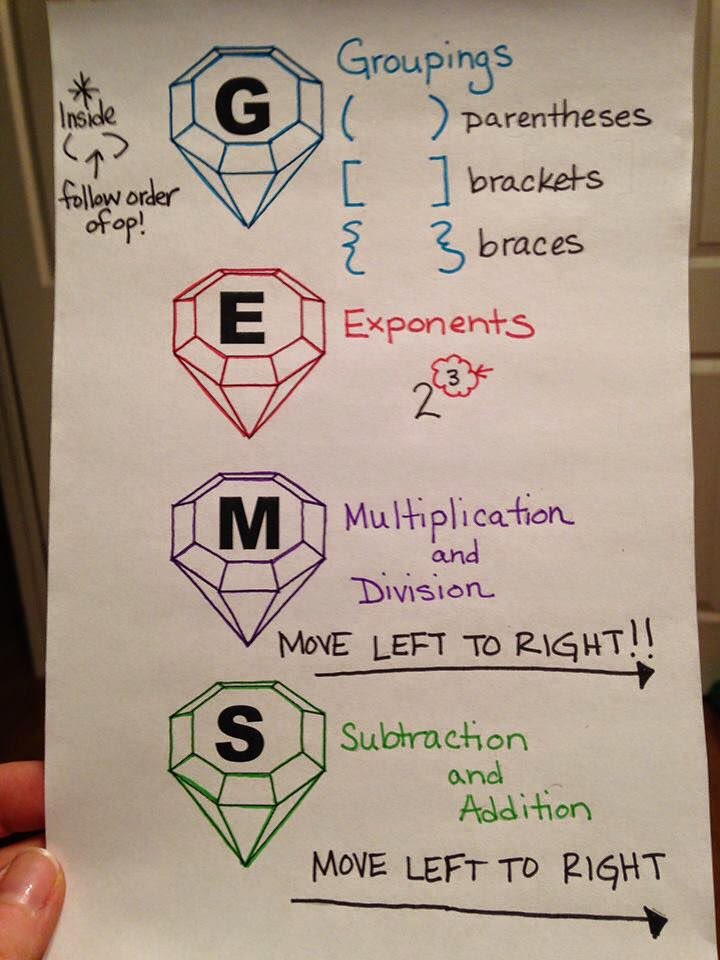 G
Groupings
( ) parentheses
[ ] brackets
{ } braces
*
Inside
( )
follow order
of op!
E
Exponents
2³
M
Multiplication
and
Division
MOVE LEFT TO RIGHT!!
S
Subtraction
and
Addition
MOVE LEFT TO RIGHT